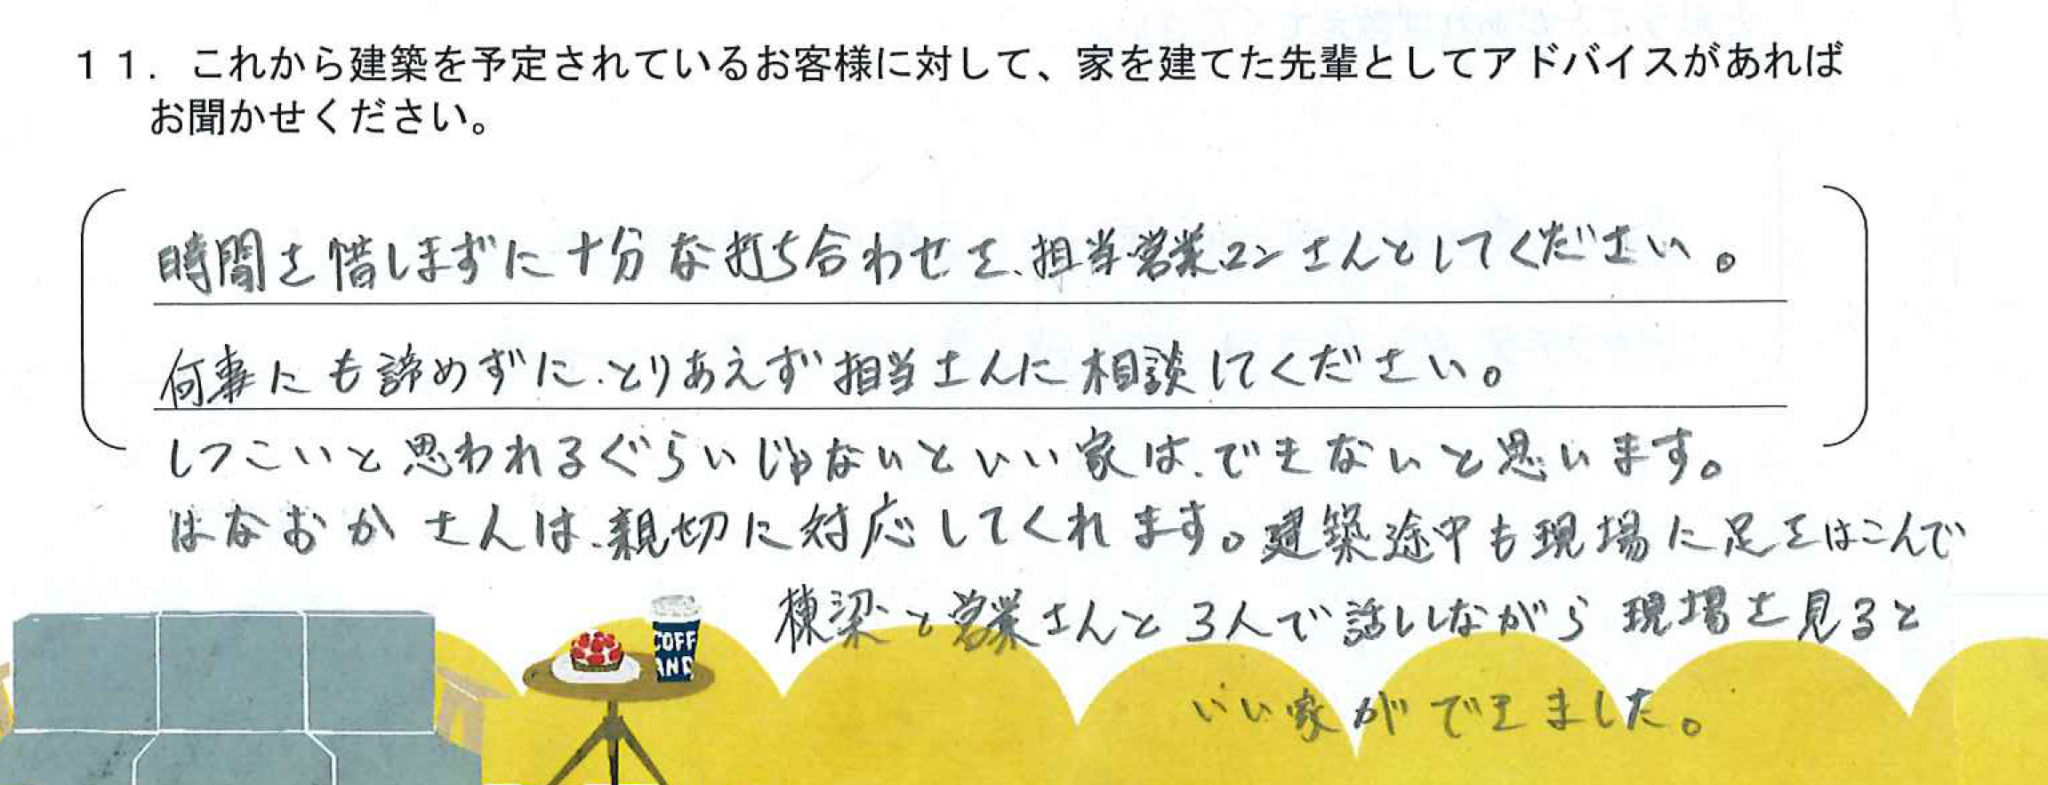 １１．これから建築を予定されているお客様に対して、家を建てた先輩としてアドバイスがあれば
お聞かせください。
時間を惜しまずに十分な打ち合わせを、担当営業マンさんとしてください。
何事にも諦めずに、とりあえず担当さんに相談してください。
しつこいと思われるぐらいじゃないといい家は、できないと思います。
はなおかさんは、親切に対応してくれます。建築途中も現場に足をはこんで
棟梁と営業さんと3人で話ししながら現場を見ると
いい家ができました。
COFF
AND